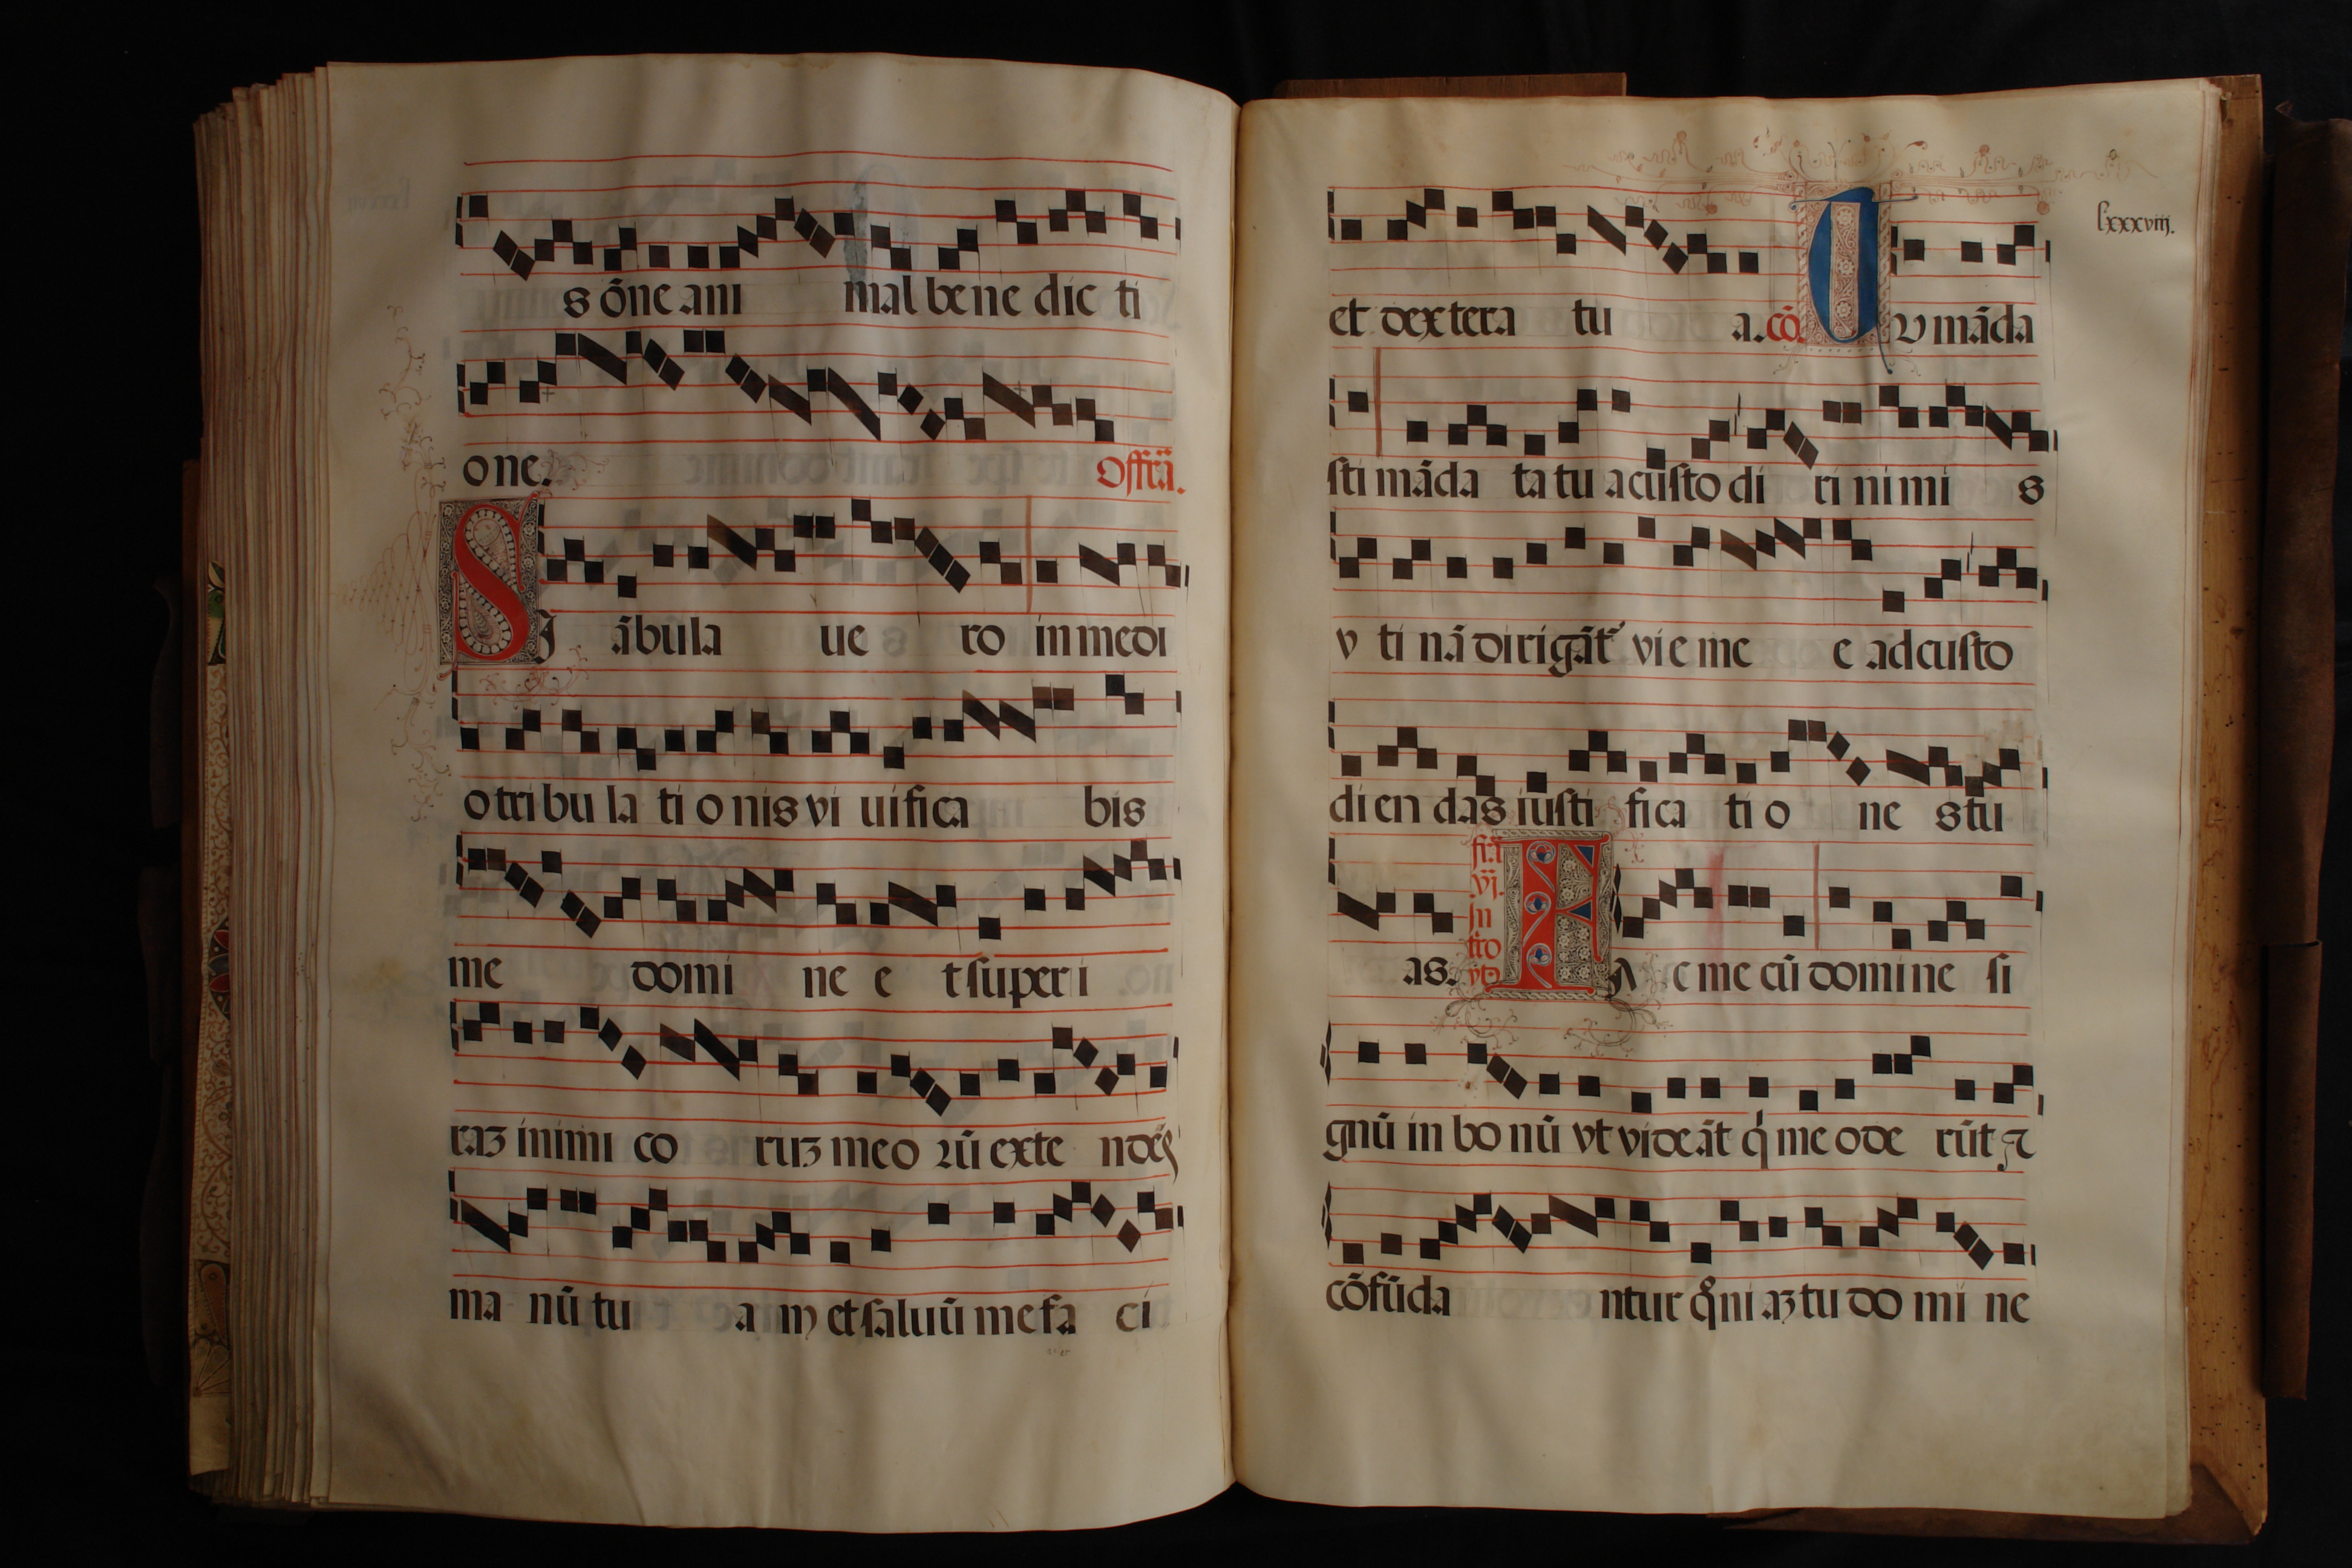 s õne ani mal bene dic ti
one. Offrã.
SJ ãbula ue ro in medi
o tri bu la ti o nis vi uifica bis
me domi ne e t super i
raʒ inimi co ruʒ meo ꝛũ exte ndes
ma nũ tu a m et saluũ me fa ci
lxxxviij.
et dextera tu a. cõ. Tv mãda
sti mãda ta tu a custo di ri ni mi s
v ti nã dirigãt vie me e ad custo
di en das iusti fica ti o ne s tu
as. fr̃a vj. In tro yt9 FA c me cũ domi ne si
gnũ in bo nũ vt videãt q̇ me ode rũt ⁊
cõfũda ntur qm̃ni aʒ tu do mi ne